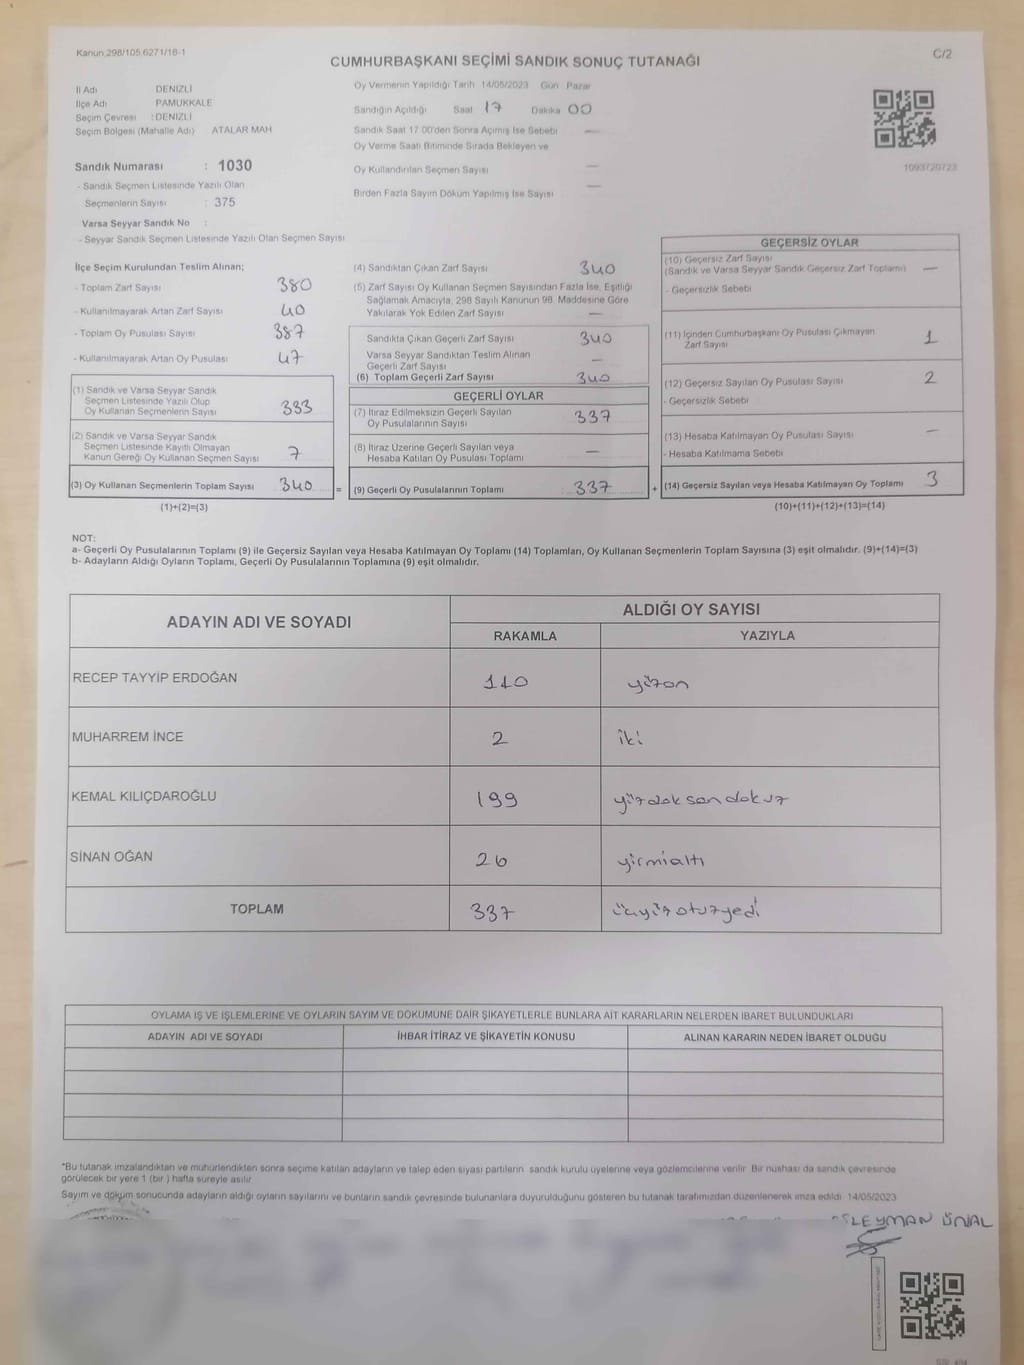 Kanun 298/105,6271/18-1
C/2
CUMHURBAŞKANI SEÇİMİ SANDIK SONUÇ TUTANAĞI
İl Adı DENİZLİ
İlçe Adı PAMUKKALE
Seçim Çevresi : DENİZLİ
Seçim Bölgesi (Mahalle Adı) ATALAR MAH
Sandık Numarası : 1030
- Sandık Seçmen Listesinde Yazılı Olan
Seçmenlerin Sayısı : 375
Varsa Seyyar Sandık No :
- Seyyar Sandık Seçmen Listesinde Yazılı Olan Seçmen Sayısı
Oy Vermenin Yapıldığı Tarih 14/05/2023 Gün Pazar
Sandığın Açıldığı Saat 17 Dakika 00
Sandık Saat 17.00'den Sonra Açılmış İse Sebebi —
Oy Verme Saati Bitiminde Sırada Bekleyen ve
Oy Kullandırılan Seçmen Sayısı —
Birden Fazla Sayım Döküm Yapılmış İse Sayısı —
1093720723
İlçe Seçim Kurulundan Teslim Alınan;
- Toplam Zarf Sayısı 380
- Kullanılmayarak Artan Zarf Sayısı 40
- Toplam Oy Pusulası Sayısı 387
- Kullanılmayarak Artan Oy Pusulası 47
(1) Sandık ve Varsa Seyyar Sandık
Seçmen Listesinde Yazılı Olup
Oy Kullanan Seçmenlerin Sayısı 333
(2) Sandık ve Varsa Seyyar Sandık
Seçmen Listesinde Kayıtlı Olmayan
Kanun Gereği Oy Kullanan Seçmen Sayısı 7
(3) Oy Kullanan Seçmenlerin Toplam Sayısı 340 =
(1)+(2)=(3)
(4) Sandıktan Çıkan Zarf Sayısı 340
(5) Zarf Sayısı Oy Kullanan Seçmen Sayısından Fazla İse, Eşitliği
Sağlamak Amacıyla, 298 Sayılı Kanunun 98. Maddesine Göre
Yakılarak Yok Edilen Zarf Sayısı —
Sandıkta Çıkan Geçerli Zarf Sayısı 340
Varsa Seyyar Sandıktan Teslim Alınan
Geçerli Zarf Sayısı —
(6) Toplam Geçerli Zarf Sayısı 340
GEÇERLİ OYLAR
(7) İtiraz Edilmeksizin Geçerli Sayılan
Oy Pusulalarının Sayısı 337
(8) İtiraz Üzerine Geçerli Sayılan veya
Hesaba Katılan Oy Pusulası Toplamı —
(9) Geçerli Oy Pusulalarının Toplamı 337 +
GEÇERSİZ OYLAR
(10) Geçersiz Zarf Sayısı
(Sandık ve Varsa Seyyar Sandık Geçersiz Zarf Toplamı) —
- Geçersizlik Sebebi
(11) İçinden Cumhurbaşkanı Oy Pusulası Çıkmayan
Zarf Sayısı 1
(12) Geçersiz Sayılan Oy Pusulası Sayısı 2
- Geçersizlik Sebebi
(13) Hesaba Katılmayan Oy Pusulası Sayısı —
- Hesaba Katılmama Sebebi
(14) Geçersiz Sayılan veya Hesaba Katılmayan Oy Toplamı 3
(10)+(11)+(12)+(13)=(14)
NOT:
a- Geçerli Oy Pusulalarının Toplamı (9) ile Geçersiz Sayılan veya Hesaba Katılmayan Oy Toplamı (14) Toplamları, Oy Kullanan Seçmenlerin Toplam Sayısına (3) eşit olmalıdır. (9)+(14)=(3)
b- Adayların Aldığı Oyların Toplamı, Geçerli Oy Pusulalarının Toplamına (9) eşit olmalıdır.
ADAYIN ADI VE SOYADI
ALDIĞI OY SAYISI
RAKAMLA YAZIYLA
RECEP TAYYİP ERDOĞAN 110 yüzon
MUHARREM İNCE 2 iki
KEMAL KILIÇDAROĞLU 199 yüzdoksandokuz
SİNAN OĞAN 26 yirmialtı
TOPLAM 337 üçyüzotuzyedi
OYLAMA İŞ VE İŞLEMLERİNE VE OYLARIN SAYIM VE DÖKÜMÜNE DAİR ŞİKAYETLERLE BUNLARA AİT KARARLARIN NELERDEN İBARET BULUNDUKLARI
ADAYIN ADI VE SOYADI İHBAR İTİRAZ VE ŞİKAYETİN KONUSU ALINAN KARARIN NEDEN İBARET OLDUĞU
*Bu tutanak imzalandıktan ve mühürlendikten sonra seçime katılan adayların ve talep eden siyasi partilerin sandık kurulu üyelerine veya gözlemcilerine verilir. Bir nüshası da sandık çevresinde
görülecek bir yere 1 (bir ) hafta süreyle asılır.
Sayım ve döküm sonucunda adayların aldığı oyların sayılarını ve bunların sandık çevresinde bulunanlara duyurulduğunu gösteren bu tutanak tarafımızdan düzenlenerek imza edildi. 14/05/2023
ÜNAL